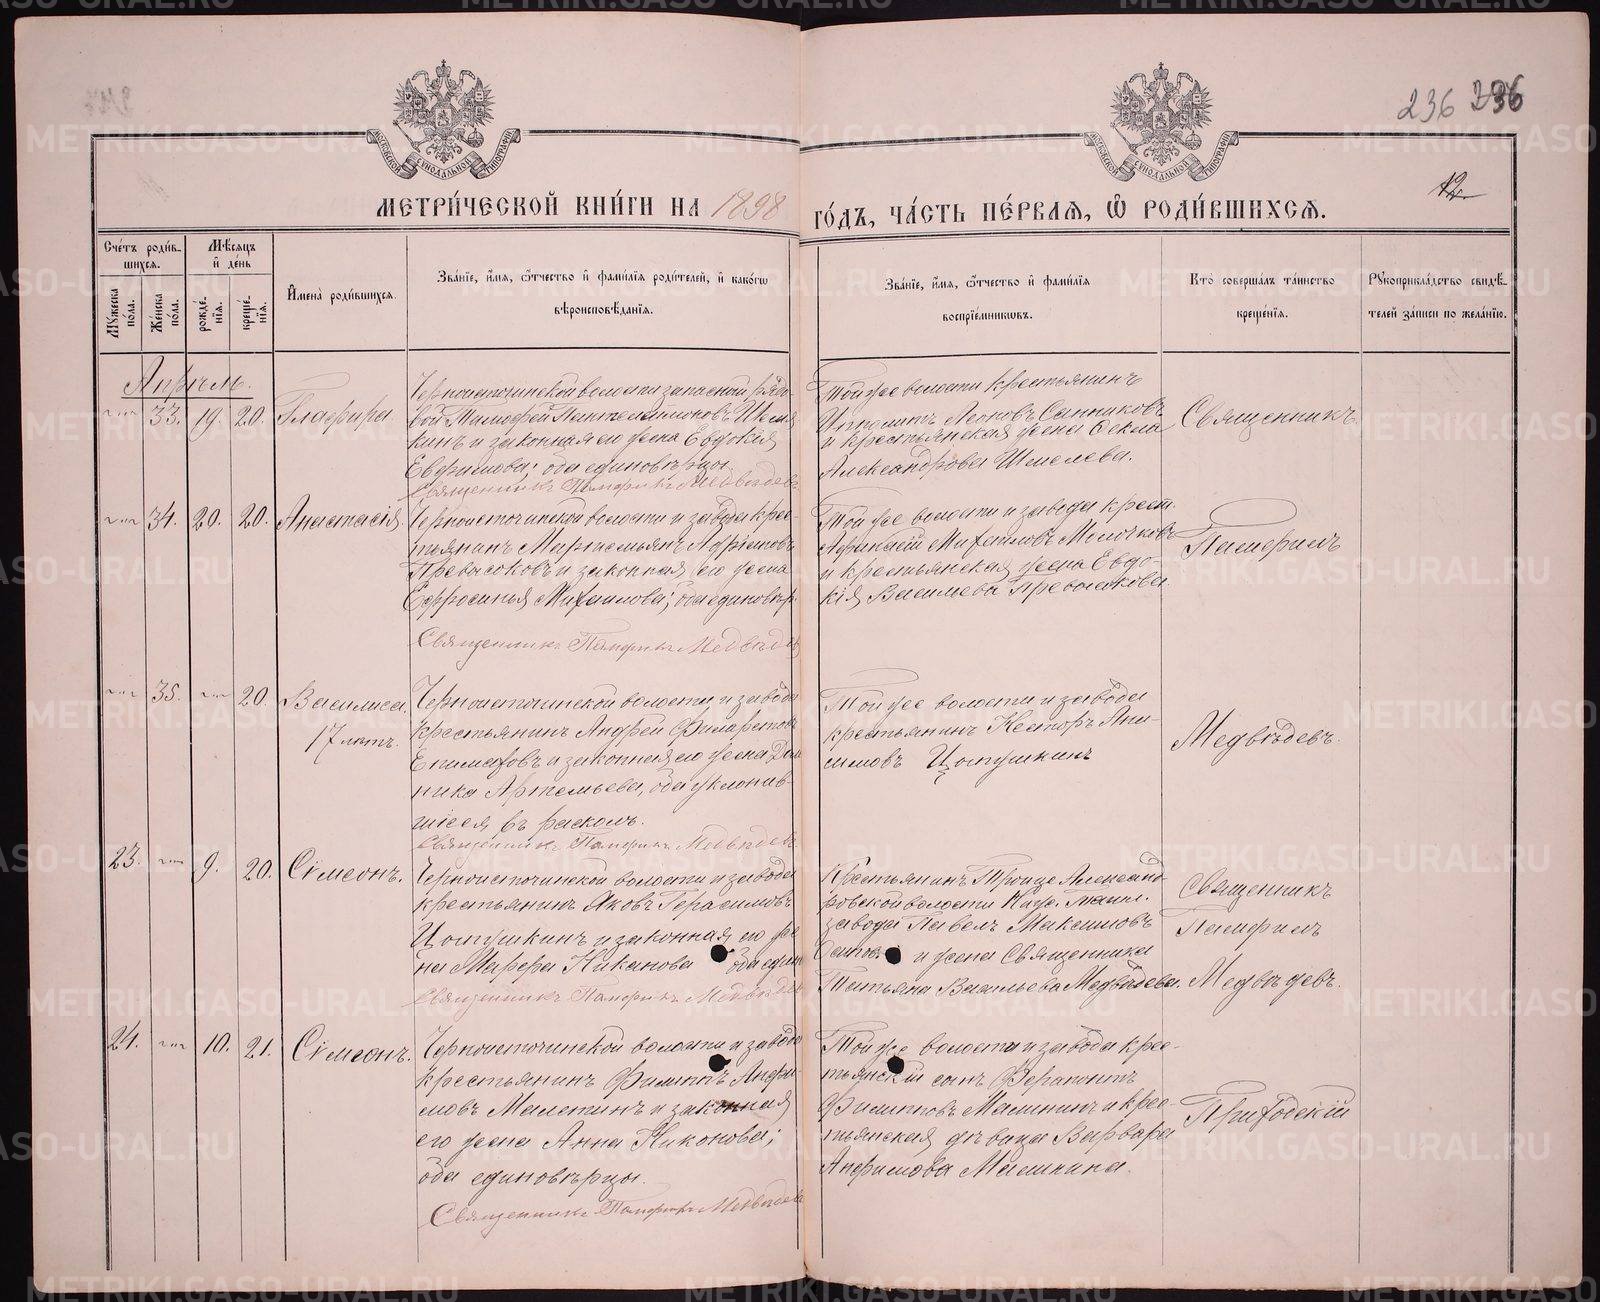 236 236
12
МЕТРИ́ЧЕСКОЙ КНИ́ГИ НА 1898 ГО́ДЪ, ЧА́СТЬ ПЕ́РВАѦ, Ѽ РОДИ́ВШИХСѦ.
Сче́тъ роди́в-
шихся.
Мѣ́сѧцъ
и҆ де́нь
Мꙋ́жеска
по́ла.
Же́нска
по́ла.
рожде́-
нїѧ.
креще́-
нїѧ.
И҆мена̀ роди́вшихся.
Зва́нїе, и҆́мѧ, ѻ҆́тчество и҆ фами́лїѧ роди́телей, и҆ како́гѡ
вѣроисповѣ́данїѧ.
Зва́нїе, и҆́мѧ, ѻ҆́тчество и҆ фами́лїѧ
воспрїе́мникѡвъ.
Кто̀ соверша́лъ та́инство
креще́нїѧ.
Рꙋкоприкла́дство свидѣ́-
телей за́писи по жела́нїю.
Апрѣль.
33. 19. 20. Глафира
Черноисточинской волости запасный рядо-
вой Тимофей Пантелеимоновъ Шемя
кинъ и законная его жена Евдокія
Евфимова; оба единовѣрцы.
Священникъ Памфилъ Медвѣдевъ
Той же волости крестьянинъ
Ипполитъ Санниковъ
и крестьянская жена Ѳекла
Александрова Шмелева.
Священникъ
34. 20. 20. Анастасія
Черноисточинской волости и завода крес-
тьянинъ Мартемьянъ Адріановъ
и законная его жена
Ефросинья Михаилова; оба единовѣр.
Священникъ Памфилъ Медвѣдевъ
Той же волости и завода крест.
Михаиловъ Молочковъ
и крестьянская жена Евдо-
кія Васильева
Памфилъ
35. 20. Василиса
17 лѣтъ.
Черноисточинской волости и завода
крестьянинъ Андрей Филаретовъ
Епимаховъ и законная его жена Дом
ника Артемьева, оба уклонив-
шіеся въ расколъ.
Священникъ Памфилъ Медвѣдевъ
Той же волости и завода
крестьянинъ Несторъ Ани-
симовъ Цопушкинъ
Медвѣдевъ.
23. 9. 20. Сѵмеонъ.
Черноисточинской волости и завода
крестьянинъ Яковъ Герасимовъ
Цопушкинъ и законная его же
на Марѳа Никанова оба един
Священникъ Памфилъ Медвѣдевъ
Крестьянинъ Троице Александ
ровской волости Ниж. Тагил.
завода Павелъ Максимовъ
и жена Священника
Татьяна Васильева Медвѣдева.
Священникъ
Памфилъ
Медвѣдевъ.
24. 10. 21. Сѵмеонъ.
Черноисточинской волости и завода
крестьянинъ Филиппъ Анфи-
мовъ Малетинъ и законная
его жена Анна Никонова;
оба единовѣрцы.
Священникъ Памфилъ Медвѣдевъ
Той же волости и завода крес-
тьянскій сынъ Ферапонтъ
Филипповъ Малининъ и крес-
тьянская дѣвица Варвара
Анфимова Малинина.
Приходскій